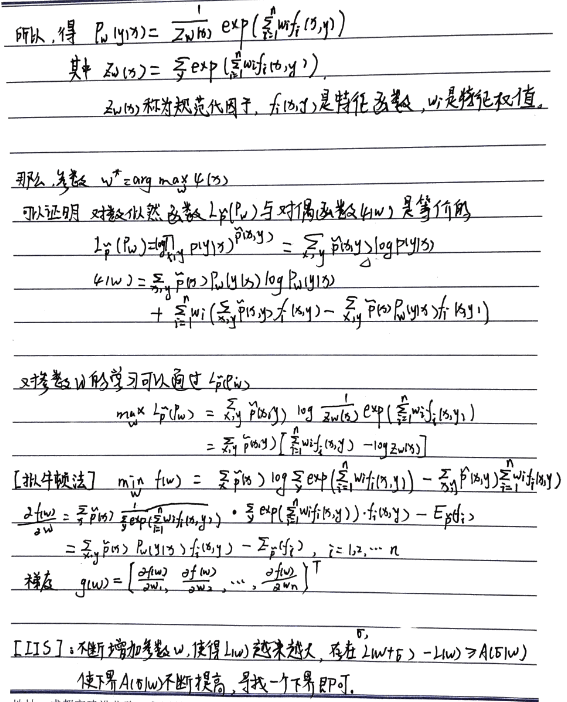 所以,得 P_w(y|x) = 1/Z_w(x) exp(∑_{i=1}^n w_i f_i(x,y))
其中 Z_w(x) = ∑_y exp(∑_{i=1}^n w_i f_i(x,y)).
Z_w(x)称为规范化因子, f_i(x,y)是特征函数, w_i是特征权值.
那么,参数 w* = arg max_w ψ(x)
可以证明 对数似然函数 L_p̃(P_w)与对偶函数ψ(w)是等价的
L_p̃(P_w)=log∏_{x,y} p(y|x)^{p̃(x,y)} = ∑_{x,y} p̃(x,y) log p(y|x)
ψ(w) = ∑_{x,y} p̃(x) P_w(y|x) log P_w(y|x)
+ ∑_{i=1}^n w_i(∑_{x,y} p̃(x,y) f_i(x,y) - ∑_{x,y} p̃(x) P_w(y|x) f_i(x,y))
对参数w的学习可以通过 L_p̃(P_w)
max_w L_p̃(P_w) = ∑_{x,y} p̃(x,y) log 1/Z_w(x) exp(∑_{i=1}^n w_i f_i(x,y))
= ∑_{x,y} p̃(x,y)[∑_{i=1}^n w_i f_i(x,y) - log Z_w(x)]
[拟牛顿法] min_w f(w) = ∑_x p̃(x) log ∑_y exp(∑_{i=1}^n w_i f_i(x,y)) - ∑_{x,y} p̃(x,y) ∑_{i=1}^n w_i f_i(x,y)
∂f(w)/∂w = ∑_x p̃(x) 1/∑_y exp(∑_{i=1}^n w_i f_i(x,y)) · ∑_y exp(∑_{i=1}^n w_i f_i(x,y)) · f_i(x,y) - E_p̃(f_i)
= ∑_{x,y} p̃(x) P_w(y|x) f_i(x,y) - E_p̃(f_i), i=1,2,… n
梯度 g(w) = [∂f(w)/∂w_1, ∂f(w)/∂w_2, …, ∂f(w)/∂w_n]^T
[IIS]:不断增加参数w,使得L(w)越来越大, 存在δ, L(w+δ) - L(w) ≥ A(δ|w)
使下界A(δ|w)不断提高, 寻找一个下界即可.